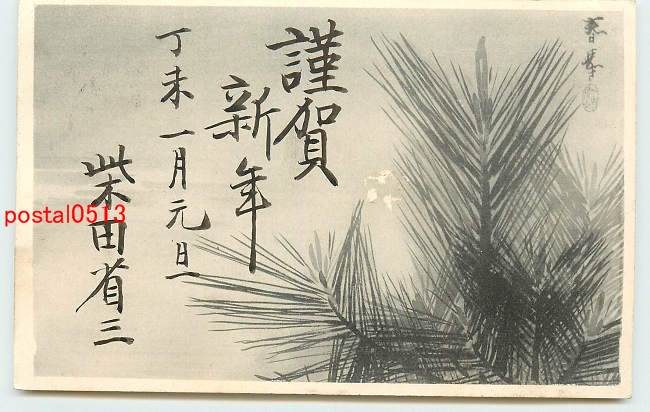 謹賀
新年
丁未一月元旦
柴田省三
postal0513